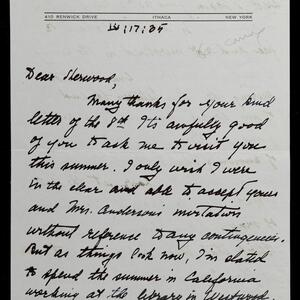 410 RENWICK DRIVE ITHACA NEW YORK
17:35
Dear Sherwood,
Many thanks for your kind
letter of the 8th. It's awfully good
of you to ask me to visit you
this summer. I only wish I were
in the clear and able to accept yours
and Mrs. Anderson's invitation
without reference to any contingencies.
But as things look now, I'm slated
to spend the summer in California
working at the library in Westwood.